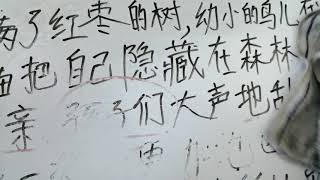 了红枣的树,幼小的鸟儿在
把自己隐藏在森林
亲 孩子们大声地乱